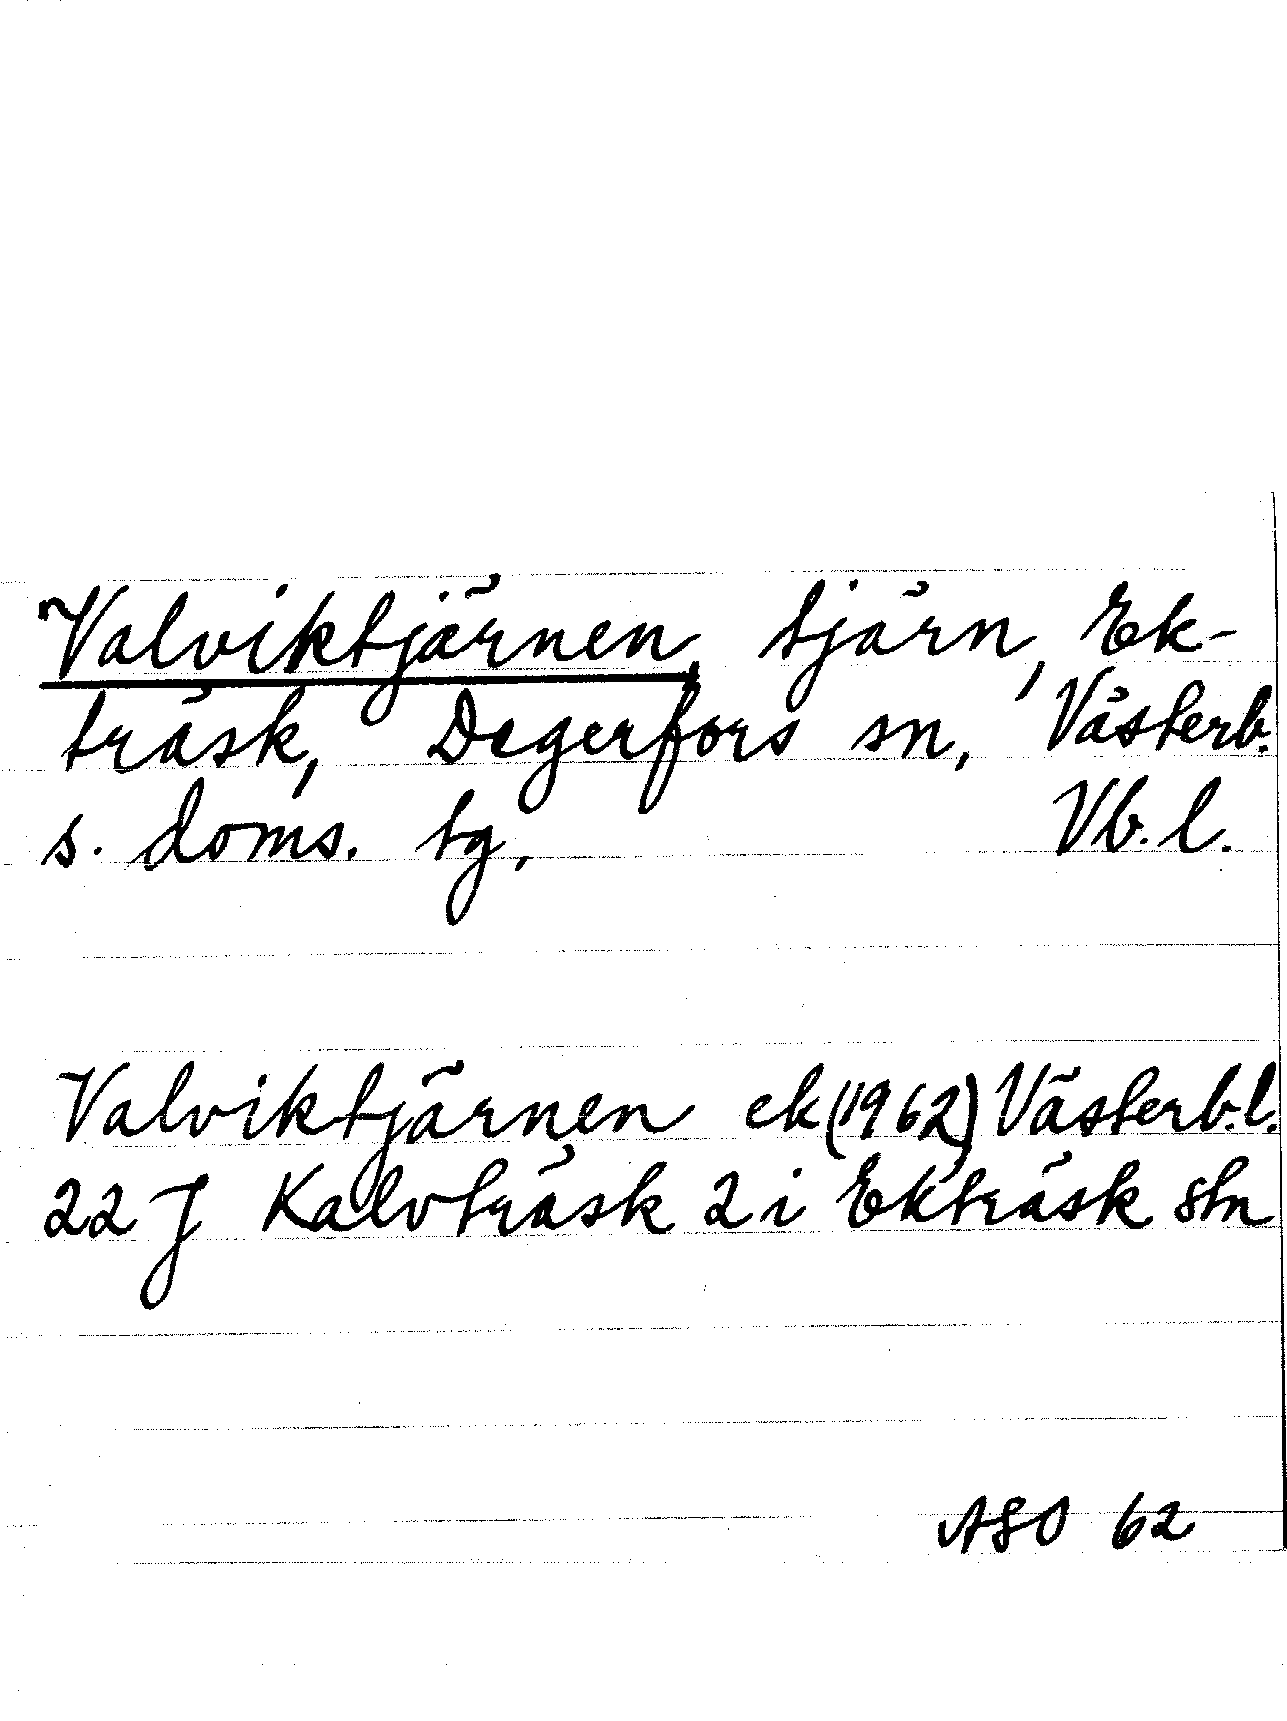 Valviktjärnen, tjärn, Ek-
träsk, Degerfors sn, Västerb.
s. doms. tg, Vb. l.
Valviktjärnen ek (1962) Västerb. l.
22 J Kalvträsk 2 i Ekträsk stn
ASO 62